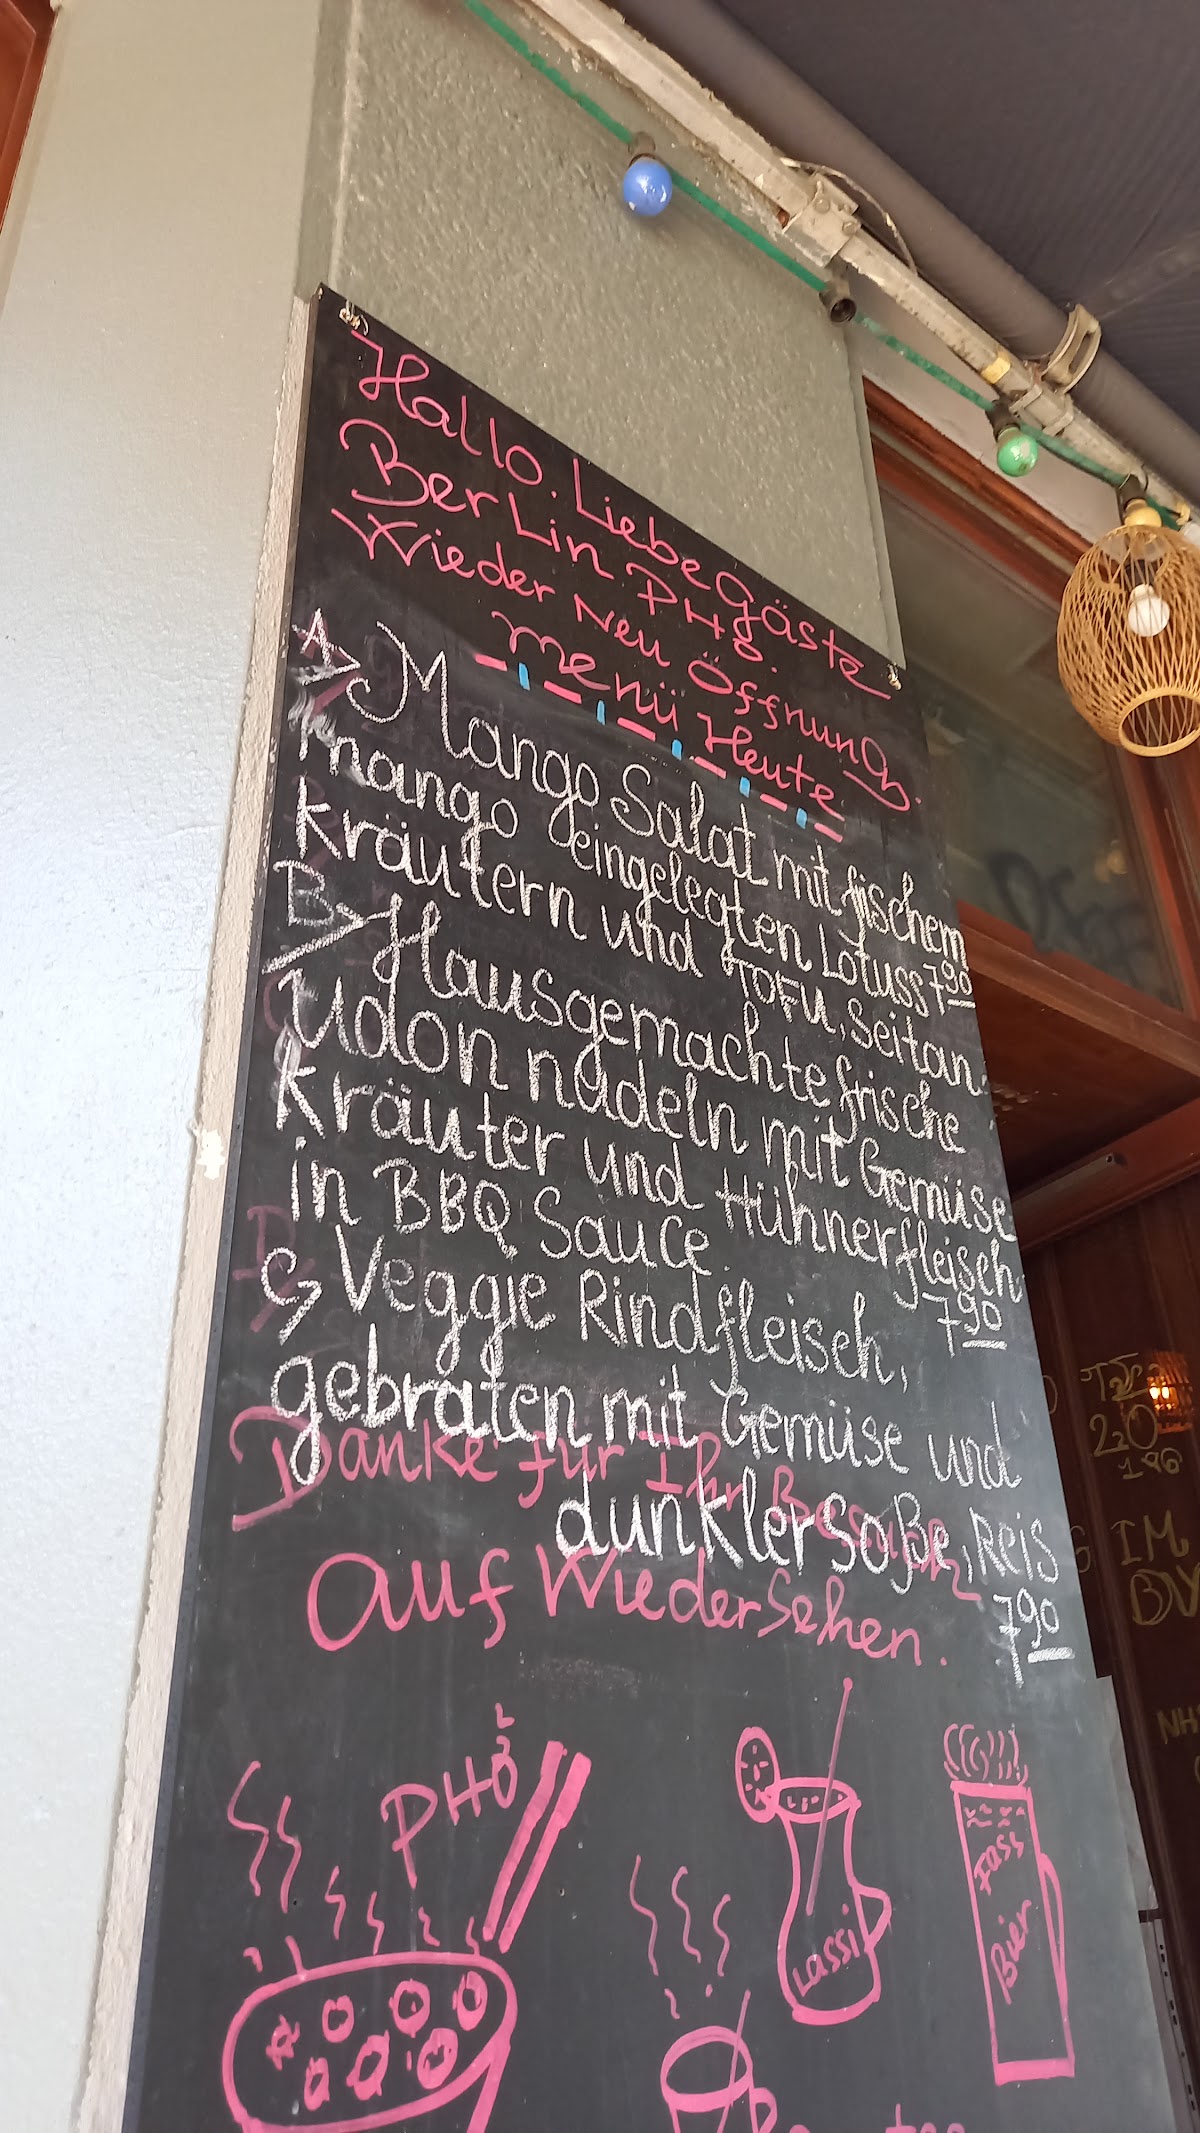 Hallo. Liebe Gäste
Berlin. PHO.
Wieder Neu Öffnung.
menü Heute
A> Mango Salat mit frischem
mango eingelegten Lotuss 7,90
kräutern und TOFU, Seitan.
B> Hausgemachte frische
Udon nudeln mit Gemüse
kräuter und Hühnerfleisch.
in BBQ Sauce. 7,90
C> Veggie Rindfleisch,
gebraten mit Gemüse und
dunkler Soße, Reis
7,90
Danke für Ihr Besuch
auf WiederSehen.
PHỞ
Lassi
Fass
Bier
IM